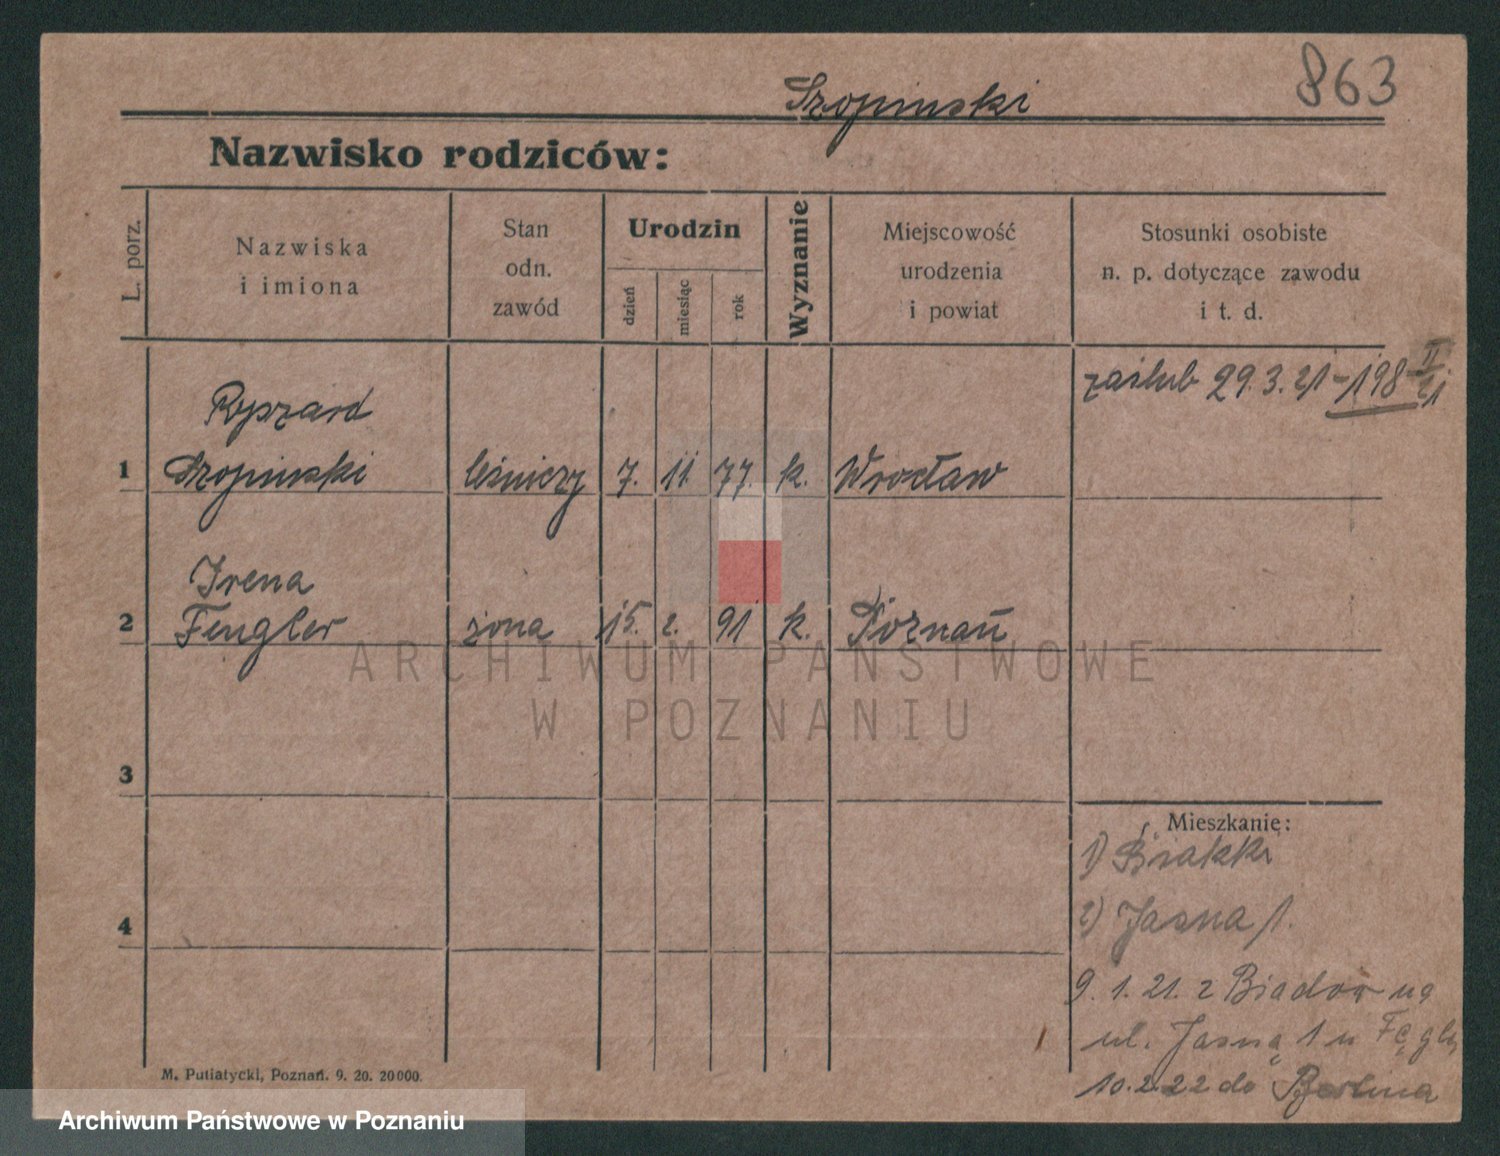 863
Szopinski
Nazwisko rodziców:
L. porz.
Nazwiska
i imiona
Stan
odn.
zawód
Urodzin
dzień
miesiąc
rok
Wyznanie
Miejscowość
urodzenia
i powiat
Stosunki osobiste
n. p. dotyczące zawodu
i t. d.
zaślub 29.3.21 - 198 II/21
Ryszard
1 Szopinski leśniczy 7. 11. 77. k. Wrocław
Irena
2 Fengler żona 15. 2. 91 k. Poznań
ARCHIWUM PAŃSTWOWE
W POZNANIU
3
Mieszkanie:
1)
2) Jasna 1.
4
9. 1. 21. z Biadów na
ul. Jasną 1 u
10.2.22 do Berlina
M. Putiatycki, Poznań. 9. 20. 20000.
Archiwum Państwowe w Poznaniu